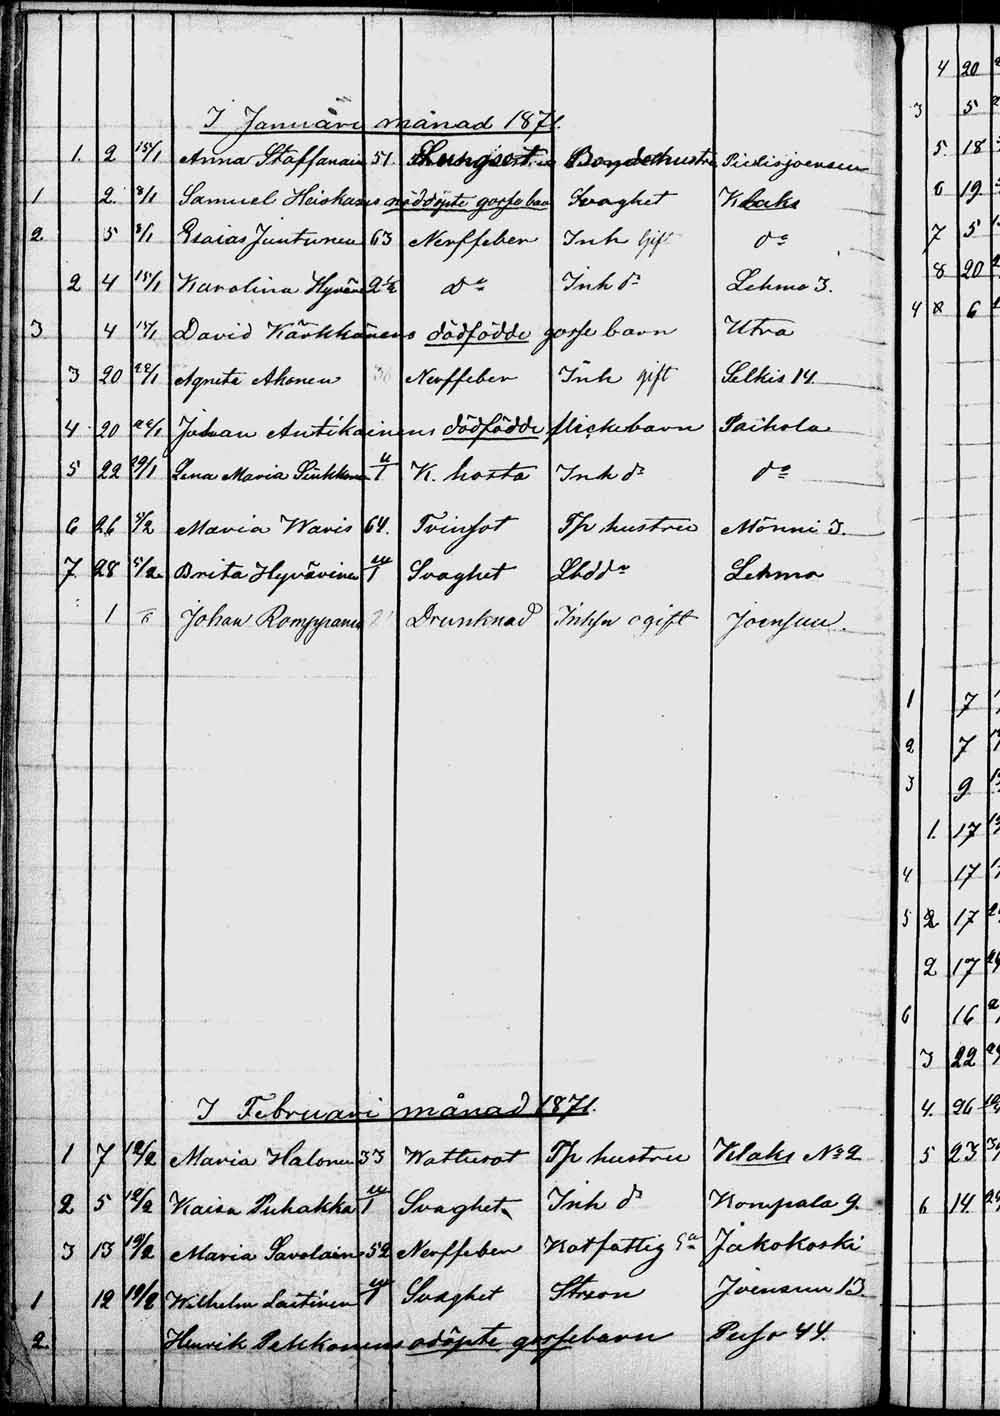 I Januari månad 1871.
1. 2 15/1 Anna Staffanain 51. Lungsot Bondehustru Pielisjoensuu
1 2. 8/1 Samuel Heiskanens nöddöpte gosse barn Svaghet Klaks
2. 5 8/1 Esaias Juntunen 63 Nerffeber Inh Gift do
2 4 15/1 Karolina Hyvärin 2 1/2 do Inh dr Lehmo 3.
3 4 15/1 David Kärkkänens dödfödde gosse barn Utra
3 20 22/1 Agneta Ahonen 30 Nerffeber Inh gift Selkis 14.
4 20 22/1 Johan Antikainens dödfödde flickebarn Paihola
5 22 29/1 Lena Maria Sinkkonen K. hosta Inh dr do
6 26 5/2 Maria Waris 64. Tvinsot Tp hustru Mönni 3.
7 28 5/2 Brita Hyvärinen Svaghet Lbddr Lehmo
1 Johan Romppanen Drunknad Inhsn ogift Joensuu.
I Februari månad 1871.
1 7 12/2 Maria Halonen 33 Wattusot Tp hustru Klaks No 2
2 5 12/2 Kaisa Puhakka Svaghet Inh dr Kompala 9.
3 13 19/2 Maria Savolain 52 Nerffeber Rotfattig Ga Jakokoski
1 12 19/2 Wilhelm Laitinen Svaghet Strson Joensuu 13
2. Henrik Pekkonens odöpte gossebarn Puso 44.
4 20
3 5
5 18
6 19
7 5
8 20
4 6
1 7
2 7
3 9
1. 17
4 17
5 2 17
2 17
6 16
3 22
4. 26
5 23
6 14